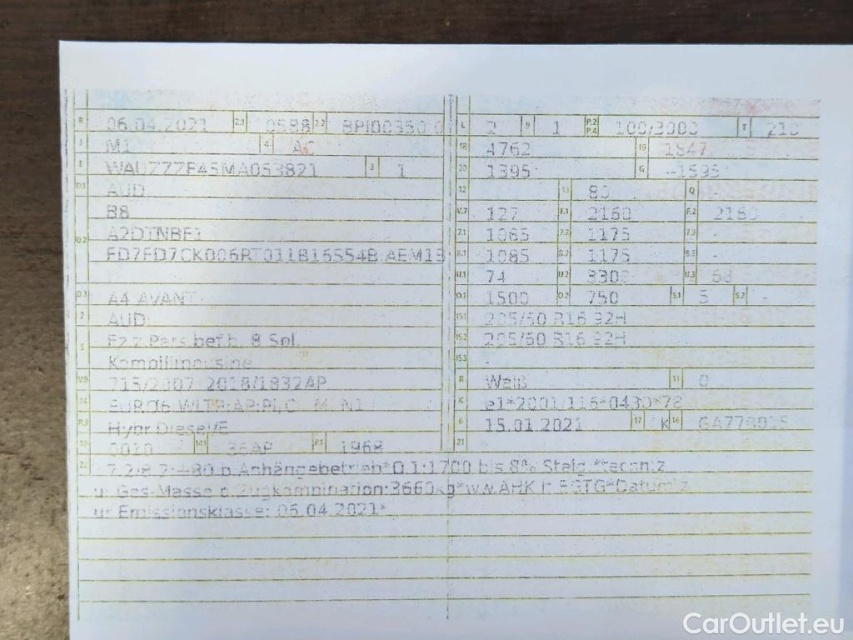 B 06.04.2021 2.1 0588 2.2 L 2 9 1 P.2 P.4 100/3000 T 210
J M1 4 AC 18 4762 19 1847
E WAUZZZF45MA053821 3 1 20 1395 G -1595
D.1 AUDI 12 13 80 Q
B8 V.7 127 F.1 2160 F.2 2160
D.2 7.1 1085 7.2 1175 7.3 -
8.1 1085 8.2 1175 8.3 -
U.1 74 U.2 3300 U.3 68
D.3 A4 AVANT O.1 1500 O.2 750 S.1 5 S.2 -
2 AUDI 15.1 205/60 R16 92H
5 Fz.z.Pers.bef.b. 8 Spl. 15.2 205/60 R16 92H
Kombilimousine 15.3 -
V.9 715/2007*2018/1832AP R Weiß 11 0
14 K e1*2001/116*0430*78
P.3 Hybr.Diesel/E 6 15.01.2021 17 K 16
10 0010 14.1 36AP P.1 1968 21
22 bis 8% Steig.*techn.z
u. Ges-Masse d.Zugkombination:3660kg*ww.AHK lt.EGTG*Datum z
ur Emissionsklasse: 06.04.2021*
CarOutlet.eu